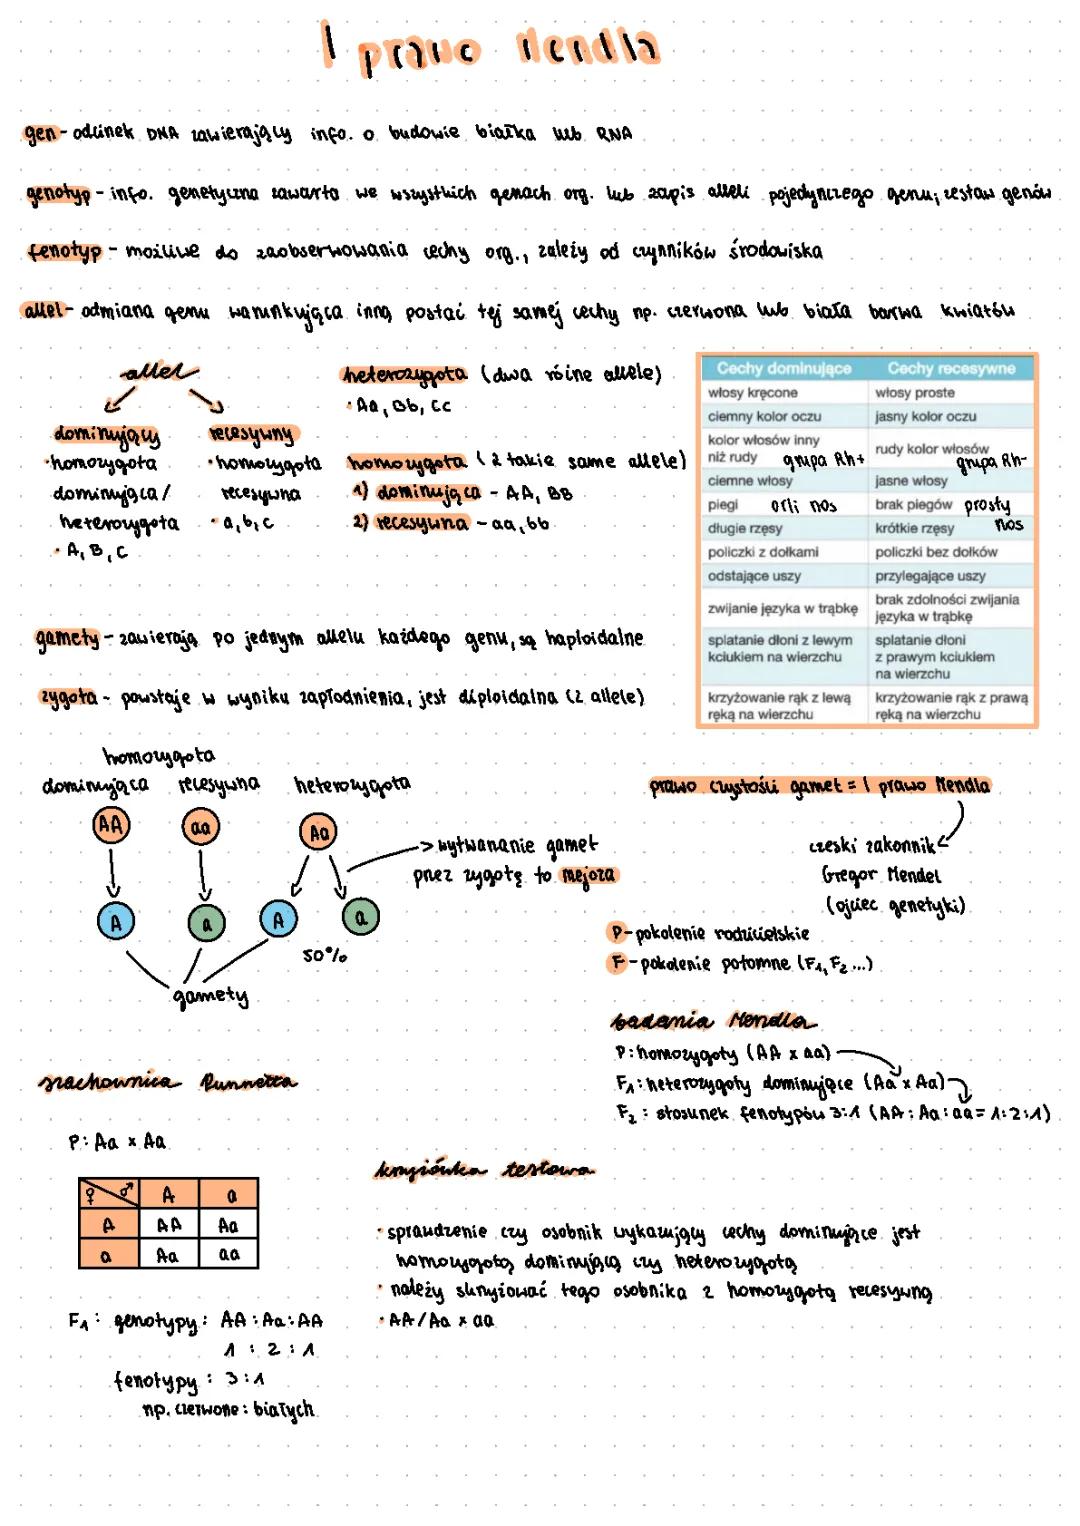 I prawo Mendla
gen - odcinek DNA zawierający info. o budowie białka lub RNA
genotyp - info. genetyczna zawarta we wszystkich genach org. lub zapis alleli pojedynczego genu; zestaw genów
fenotyp - możliwe do zaobserwowania cechy org., zależy od czynników środowiska
allel - odmiana genu warunkująca inną postać tej samej cechy np. czerwona lub biała barwa kwiatów
allel
dominujący
• homozygota
dominująca /
heterozygota
• A, B, C
recesywny
• homozygota
recesywna
• a, b, c
heterozygota (dwa różne allele)
• Aa, Bb, Cc
homozygota (2 takie same allele)
1) dominująca - AA, BB
2) recesywna - aa, bb
Cechy dominujące Cechy recesywne
włosy kręcone włosy proste
ciemny kolor oczu jasny kolor oczu
kolor włosów inny
niż rudy grupa Rh+ rudy kolor włosów grupa Rh-
ciemne włosy jasne włosy
piegi orli nos brak piegów prosty nos
długie rzęsy krótkie rzęsy
policzki z dołkami policzki bez dołków
odstające uszy przylegające uszy
zwijanie języka w trąbkę brak zdolności zwijania
języka w trąbkę
splatanie dłoni z lewym splatanie dłoni
kciukiem na wierzchu z prawym kciukiem
na wierzchu
krzyżowanie rąk z lewą krzyżowanie rąk z prawą
ręką na wierzchu ręką na wierzchu
gamety - zawierają po jednym allelu każdego genu, są haploidalne
zygota - powstaje w wyniku zapłodnienia, jest diploidalna (2 allele)
homozygota
dominująca recesywna heterozygota
AA aa Aa
A a A a
50%
gamety
-> wytwarzanie gamet
przez zygotę to mejoza
prawo czystości gamet = I prawo Mendla
czeski zakonnik
Gregor Mendel
(ojciec genetyki)
P - pokolenie rodzicielskie
F - pokolenie potomne (F1, F2 ...)
badania Mendla
P: homozygoty (AA x aa)
F1: heterozygoty dominujące (Aa x Aa)
F2: stosunek fenotypów 3:1 (AA : Aa : aa = 1:2:1)
szachownica Punnetta
P: Aa x Aa
♀ ♂ A a
A AA Aa
a Aa aa
F1: genotypy: AA : Aa : AA
1 : 2 : 1
fenotypy: 3:1
np. czerwone : białych
krzyżówka testowa
• sprawdzenie czy osobnik wykazujący cechy dominujące jest
homozygotą dominującą czy heterozygotą
• należy skrzyżować tego osobnika z homozygotą recesywną
• AA/Aa x aa